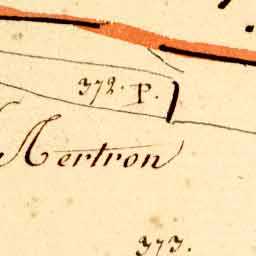 372. P.
Aertron
373.